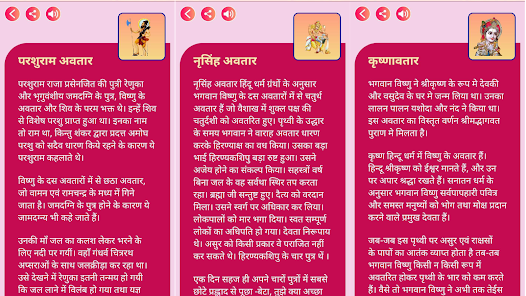 परशुराम अवतार
परशुराम राजा प्रसेनजित की पुत्री रेणुका
और भृगुवंशीय जमदग्नि के पुत्र, विष्णु के
अवतार और शिव के परम भक्त थे। इन्हें शिव
से विशेष परशु प्राप्त हुआ था। इनका नाम
तो राम था, किन्तु शंकर द्वारा प्रदत्त अमोघ
परशु को सदैव धारण किये रहने के कारण ये
परशुराम कहलाते थे।
विष्णु के दस अवतारों में से छठा अवतार,
जो वामन एवं रामचन्द्र के मध्य में गिने
जाता है। जमदग्नि के पुत्र होने के कारण ये
जामदग्न्य भी कहे जाते हैं।
उनकी माँ जल का कलश लेकर भरने के
लिए नदी पर गयीं। वहाँ गंधर्व चित्ररथ
अप्सराओं के साथ जलक्रीड़ा कर रहा था।
उसे देखने में रेणुका इतनी तन्मय हो गयी
कि जल लाने में विलंब हो गया तथा यज्ञ
नृसिंह अवतार
नृसिंह अवतार हिंदू धर्म ग्रंथों के अनुसार
भगवान विष्णु के दस अवतारों में से चतुर्थ
अवतार हैं जो वैशाख में शुक्ल पक्ष की
चतुर्दशी को अवतरित हुए। पृथ्वी के उद्धार
के समय भगवान ने वाराह अवतार धारण
करके हिरण्याक्ष का वध किया। उसका बड़ा
भाई हिरण्यकशिपु बड़ा रुष्ट हुआ। उसने
अजेय होने का संकल्प किया। सहस्त्रों वर्ष
बिना जल के वह सर्वथा स्थिर तप करता
रहा। ब्रह्मा जी सन्तुष्ट हुए। दैत्य को वरदान
मिला। उसने स्वर्ग पर अधिकार कर लिया।
लोकपालों को मार भगा दिया। स्वत सम्पूर्ण
लोकों का अधिपति हो गया। देवता निरूपाय
थे। असुर को किसी प्रकार वे पराजित नहीं
कर सकते थे। हिरण्यकशिपु के चार पुत्र थें ।
एक दिन सहज ही अपने चारों पुत्रों में सबसे
छोटे प्रह्लाद से पूछा -बेटा, तुझे क्या अच्छा
कृष्णावतार
भगवान विष्णु ने श्रीकृष्ण के रूप मे देवकी
और वसुदेव के घर मे जन्म लिया था। उनका
लालन पालन यशोदा और नंद ने किया था।
इस अवतार का विस्तृत वर्णन श्रीमद्भागवत
पुराण मे मिलता है।
कृष्ण हिन्दू धर्म में विष्णु के अवतार हैं।
हिन्दू श्रीकृष्ण को ईश्वर मानते हैं, और उन
पर अपार श्रद्धा रखते हैं। सनातन धर्म के
अनुसार भगवान विष्णु सर्वपापहारी पवित्र
और समस्त मनुष्यों को भोग तथा मोक्ष प्रदान
करने वाले प्रमुख देवता हैं।
जब-जब इस पृथ्वी पर असुर एवं राक्षसों
के पापों का आतंक व्याप्त होता है तब-तब
भगवान विष्णु किसी न किसी रूप में
अवतरित होकर पृथ्वी के भार को कम करते
हैं। वैसे तो भगवान विष्णु ने अभी तक तेईस